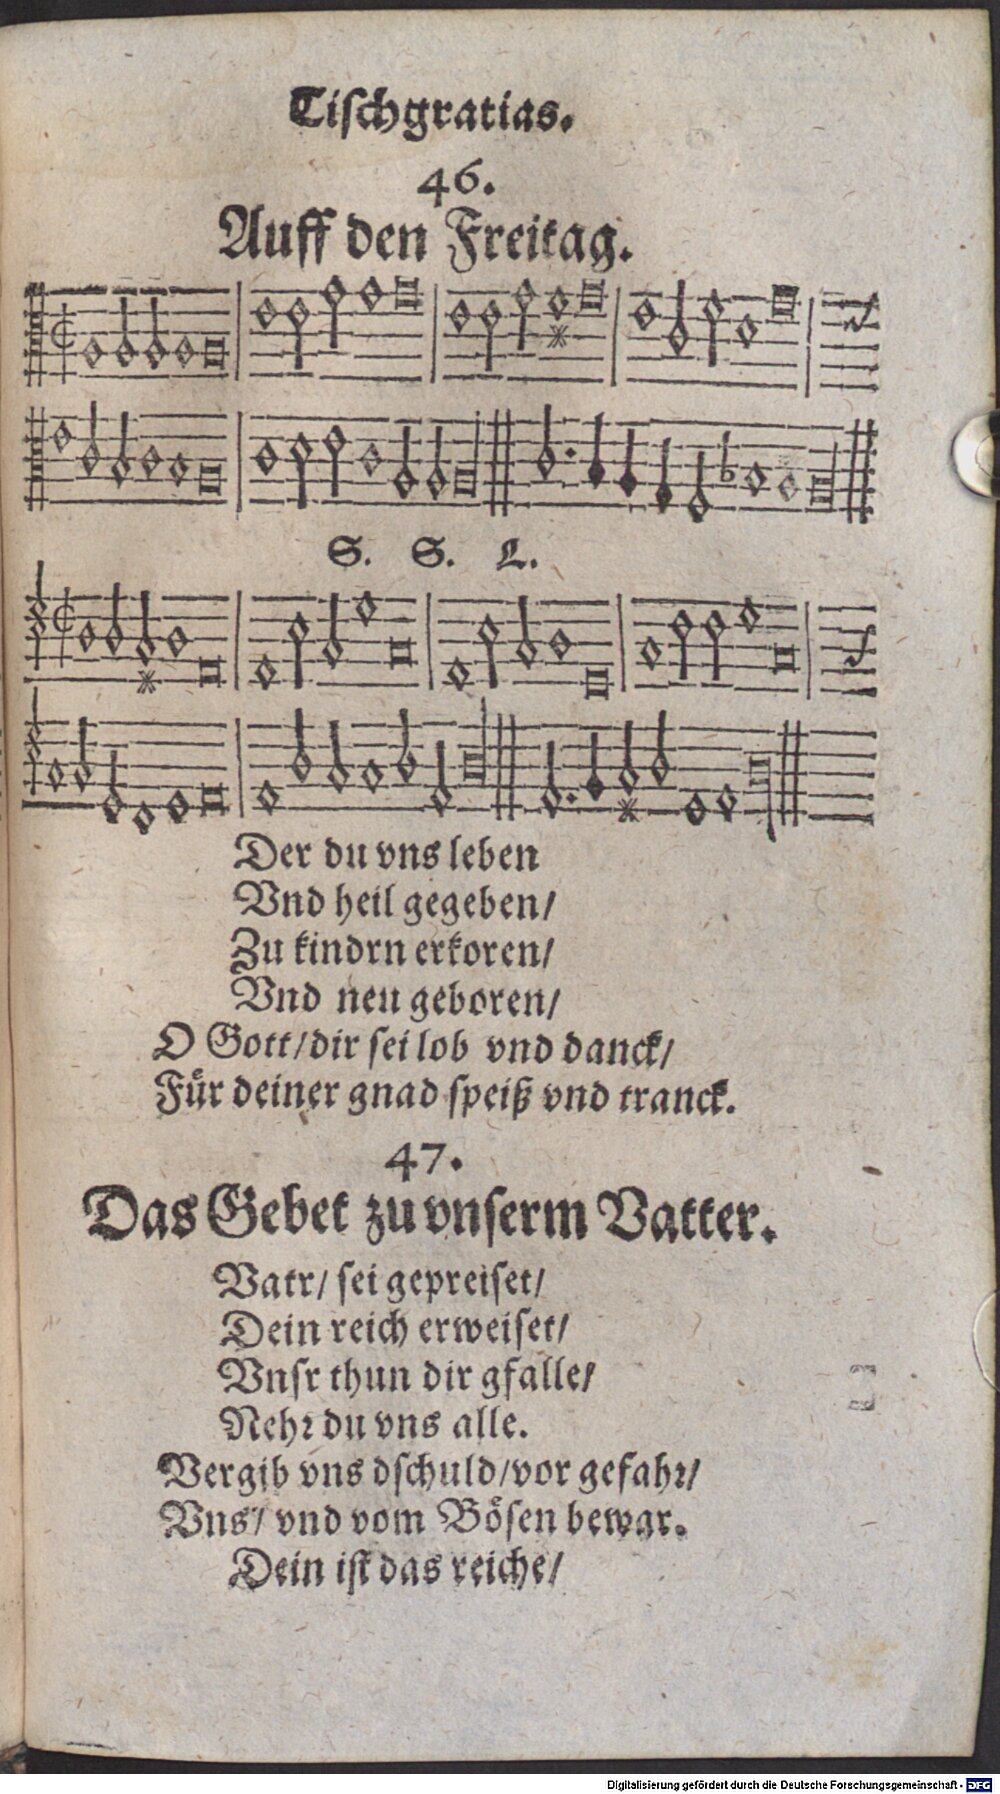 Tiſchgratias.
46.
Auff den Freitag.
S. S. L.
Der du vns leben
Vnd heil gegeben/
Zu kindrn erkoren/
Vnd neu geboren/
O Gott/dir ſei lob vnd danck/
Für deiner gnad ſpeiß vnd tranck.
47.
Das Gebet zu vnſerm Vatter.
Vatr/ ſei gepreiſet/
Dein reich erweiſet/
Vnſr thun dir gfalle/
Nehꝛ du vns alle.
Vergib vns dſchuld/vor gefahꝛ/
Vns/ vnd vom Böſen bewar.
Dein iſt das reiche/
Digitalisierung gefördert durch die Deutsche Forschungsgemeinschaft - DFG